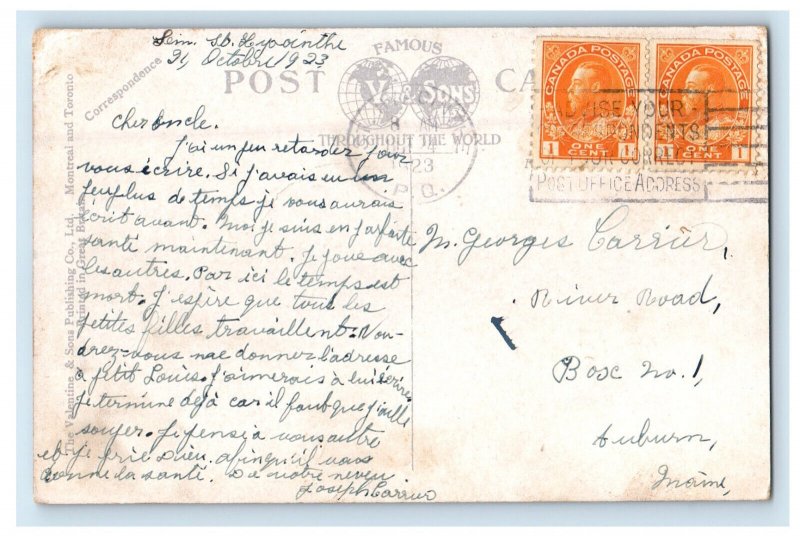 Sém. St. Hyacinthe
21, Octobre 1923
FAMOUS
POST CA
V. & SONS
THROUGHOUT THE WORLD
Correspondence
The Valentine & Sons Publishing Co., Ltd. Montreal and Toronto
Printed in Great Britain
CANADA POSTAGE
1 ONE CENT 1
CANADA POSTAGE
1 ONE CENT 1
23
P.Q.
ADVISE YOUR
POST OFFICE ADDRESS
Cher Oncle.
J'ai un peu retarder pour
vous écrire. Si j'avais eu un
peu plus de temps je vous aurais
écrit avant. Moi je suis en parfaite
santé maintenant. Je joue avec
les autres. Par ici le temps est
mort. J'espère que tous les
petites filles travaillent. Vou-
drez-vous me donner l'adresse
à petit Louis. J'aimerais à lui écrire.
Je termine déjà car il faut que j'aille
souper. Je pense à vous autre
et je prie Dieu, afin qu'il vous
donne la santé. De votre neveu
Joseph Carrier
M. Georges Carrier,
River Road,
Box No. 1,
Auburn,
Maine,